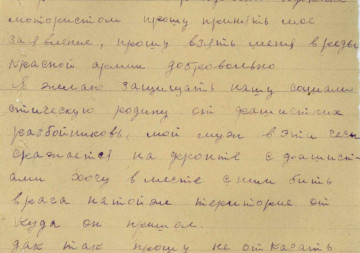 мотористом прошу принять мое
заявление, прошу взять меня в ряды
красной армии добровольно
Я желаю защищать нашу социали
стическую родину от фашистких
разбойниковь, мой муж в эти часы
сражается на фронте с фашист-
ами хочу вместе с ним бить
врага на тойже територие от
куда он пришол.
так что прошу не отказать